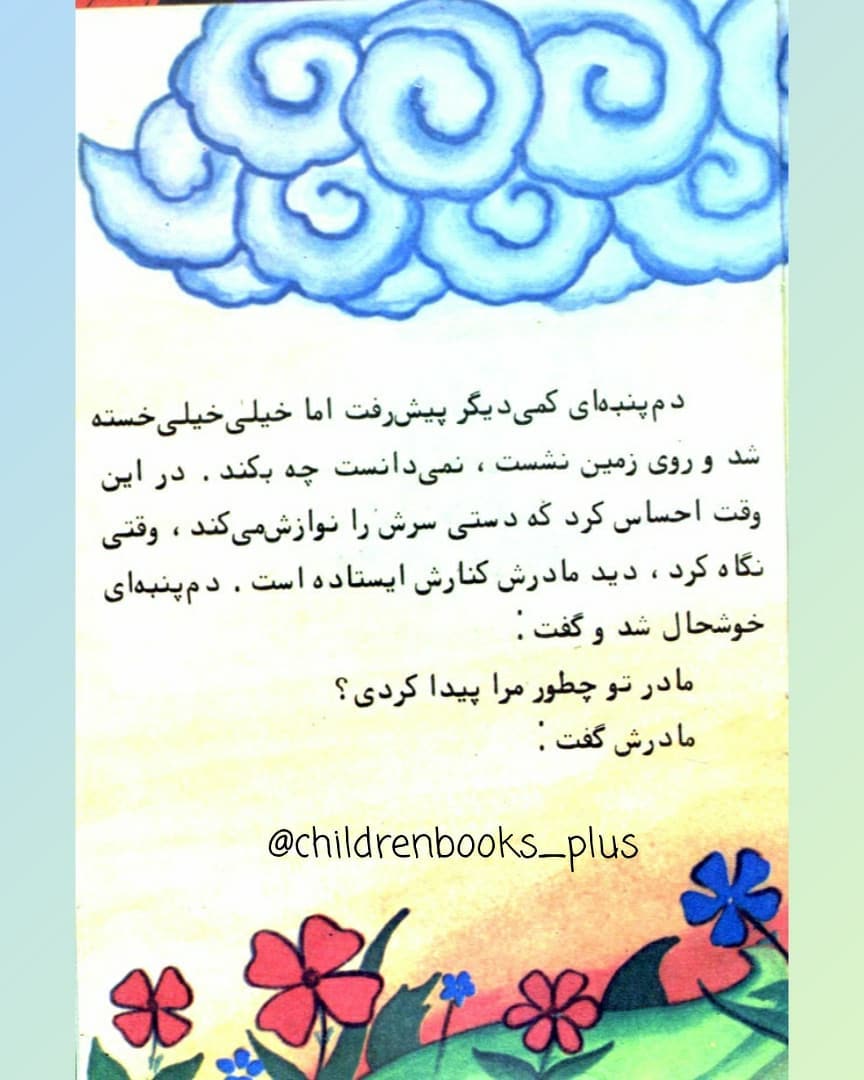 دم‌پنبه‌ای کمی‌دیگر پیش‌رفت اما خیلی‌خیلی‌خسته
شد و روی زمین نشست ، نمی‌دانست چه بکند . در این
وقت احساس کرد که دستی سرش را نوازش‌می‌کند ، وقتی
نگاه کرد ، دید مادرش کنارش ایستاده است . دم‌پنبه‌ای
خوشحال شد و گفت :
مادر تو چطور مرا پیدا کردی؟
مادرش گفت :
@childrenbooks_plus